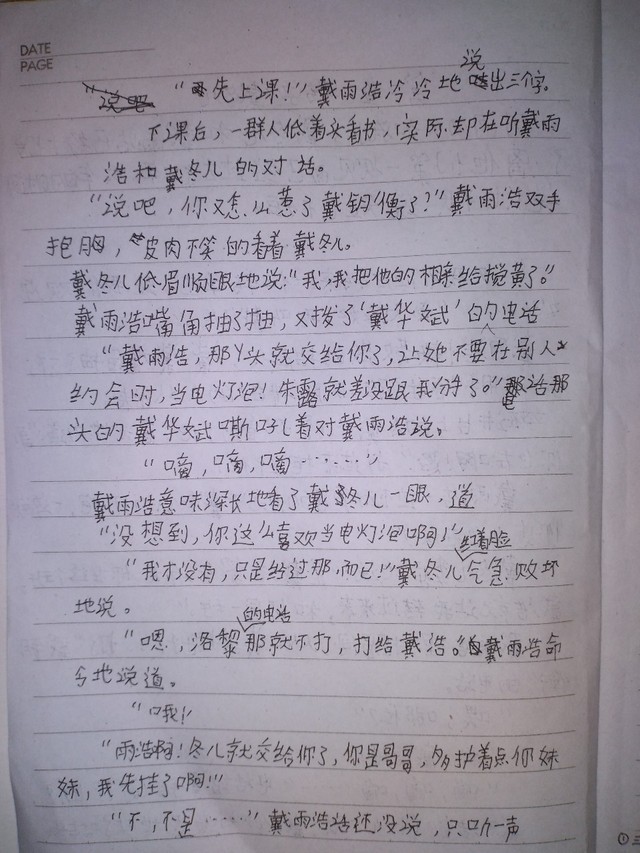 DATE
PAGE
说
"先上课!"戴雨浩冷冷地出三个字。
下课后,一群人低着头看书,实际却在听戴雨
浩和戴冬儿的对话。
"说吧,你又怎么惹了戴钥衡了?"戴雨浩双手
抱胸,皮肉不笑的看着戴冬儿。
戴冬儿低眉顺眼地说:"我,我把他的相亲给搅黄了。"
戴雨浩嘴角抽了抽,又拨了'戴华斌'的电话
"戴雨浩,那丫头就交给你了,让她不要在别人
约会时,当电灯泡!朱露就差没跟我分手了。"电话那
头的戴华斌嘶吼着对戴雨浩说。
"嘀,嘀,嘀……"
戴雨浩意味深长地看了戴冬儿一眼,道
"没想到,你这么喜欢当电灯泡啊!"
红着脸
"我才没有,只是经过那,而已!"戴冬儿气急败坏
地说。
的电话
"嗯,洛黎那就不打,打给戴浩。"戴雨浩命
令地说道。
"哦!"
"雨浩啊!冬儿就交给你了,你是哥哥,多护着点你妹
妹,我先挂了啊!"
"不,不是……"戴雨浩话还没说,只听一声
①